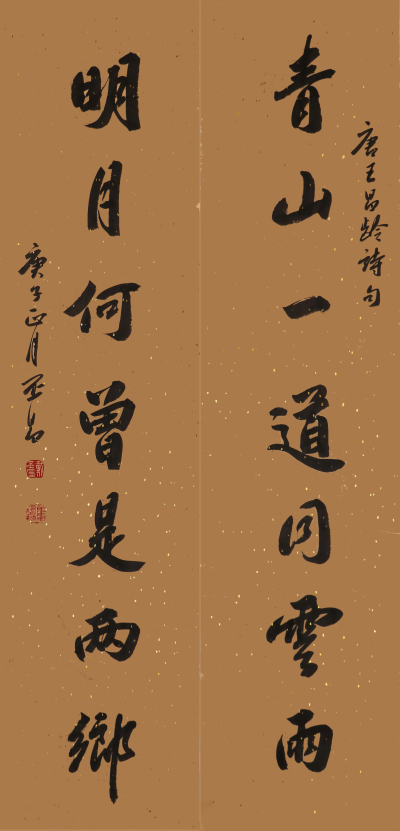 唐王昌齡詩句
青山一道同雲雨
明月何曾是两鄉
庚子正月亚昌